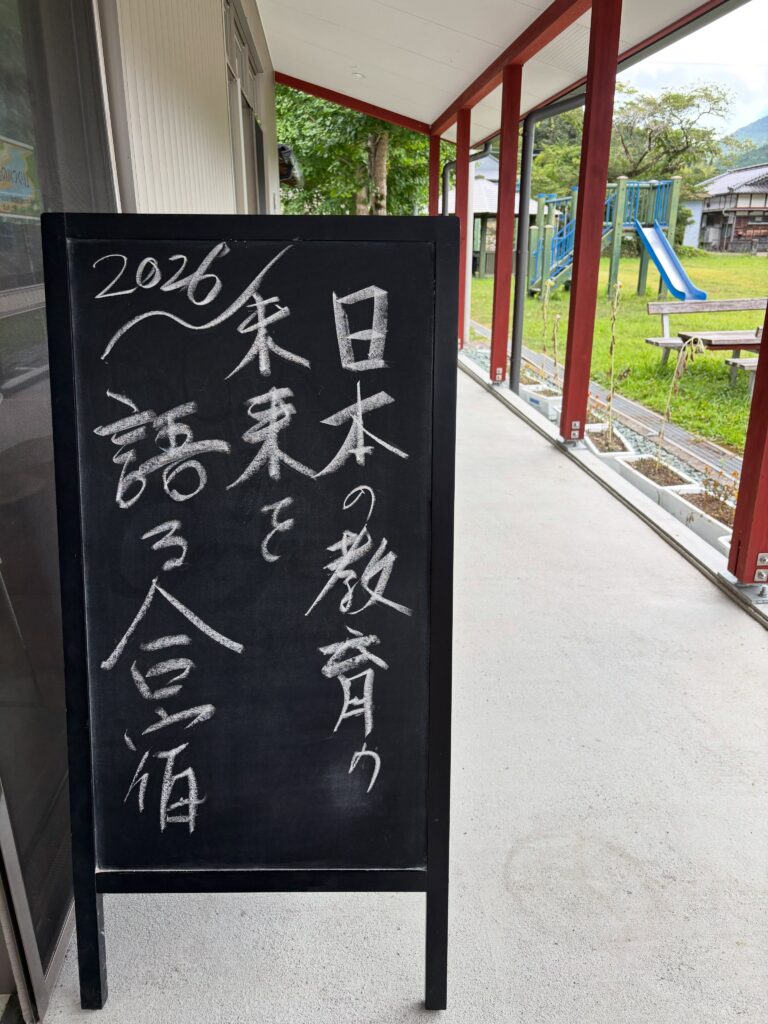 2026
日本の教育の
未来を
語る合宿